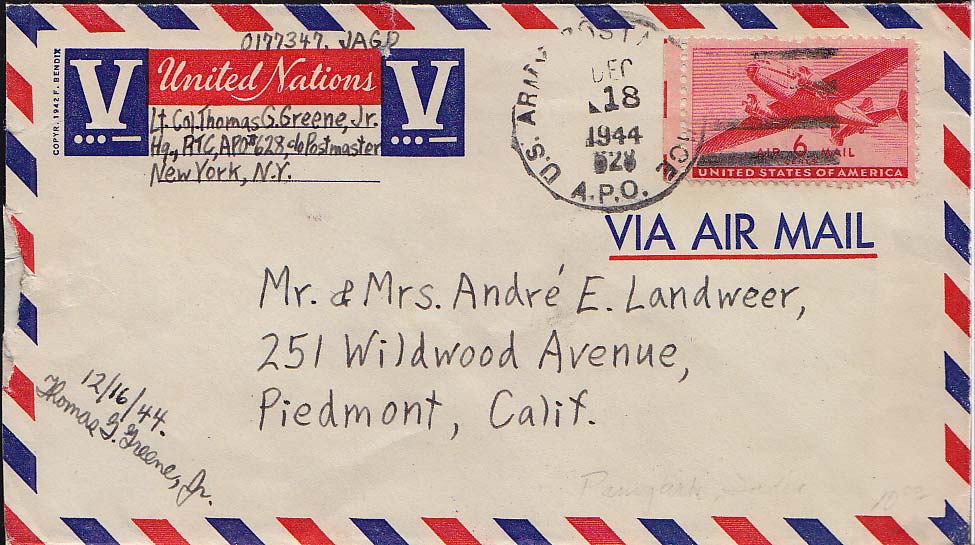 0177347, JAGD
COPYR. 1942 F. BENDIX
V
United Nations
V
Lt Col. Thomas G. Greene, Jr.
Hq., RTC, APO#628 c/o Postmaster
New York, N.Y.
U.S. ARMY POSTAL
DEC
18
1944
628
A.P.O.
AIR 6 MAIL
UNITED STATES OF AMERICA
VIA AIR MAIL
Mr. & Mrs. André E. Landweer,
251 Wildwood Avenue,
Piedmont, Calif.
12/16/44.
Thomas G. Greene, Jr.